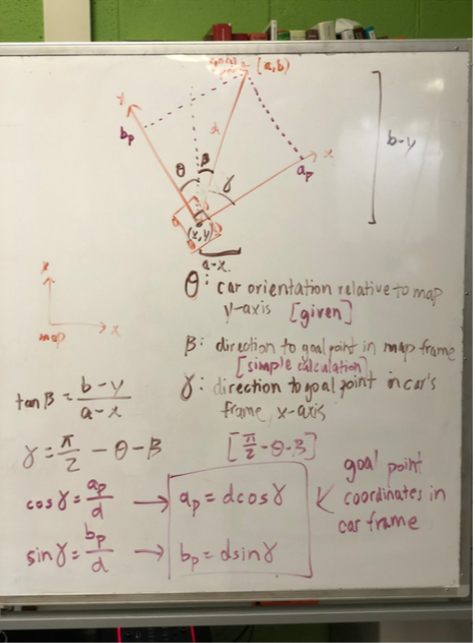 (a,b)
y
b_p
d
x
a_p
b-y
θ
β
γ
(x,y)
a-x
θ: car orientation relative to map
y-axis [given]
x
map
x
β: direction to goal point in map frame
[simple calculation]
γ: direction to goal point in car's
frame, x-axis
tanβ = \frac{b-y}{a-x}
γ = \frac{π}{2} - θ - β
[\frac{π}{2} - θ - β]
cosγ = \frac{a_p}{d} → a_p = d cosγ
sinγ = \frac{b_p}{d} → b_p = d sinγ
goal point
coordinates in
car frame